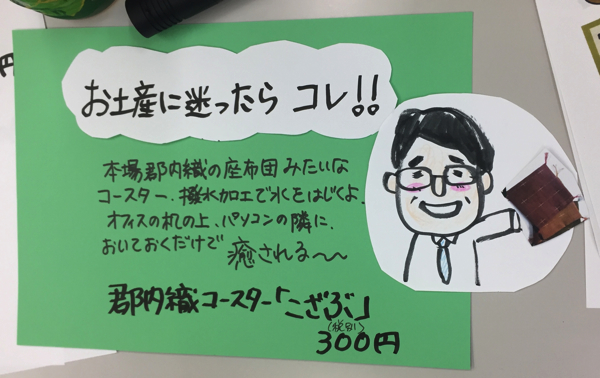 お土産に迷ったら コレ!!
本場郡内織の座布団みたいな
コースター. 撥水加工で水をはじくよ.
オフィスの机の上、パソコンの隣に.
おいておくだけで 癒される〜〜
郡内織コースター「こざぶ」
(税別)
300円
円